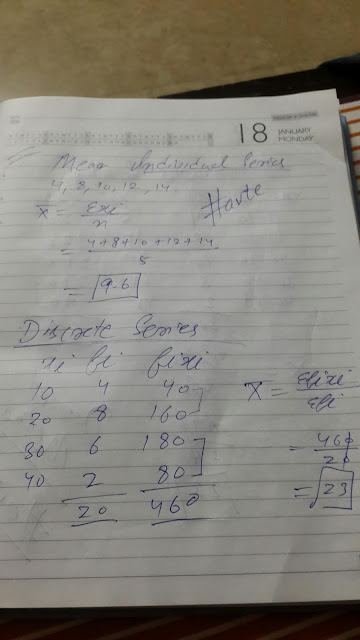 18 JANUARY
MONDAY
Mean Individual Series
4, 8, 10, 12, 14
x̄ = Σxi / n
= 4+8+10+12+14 / 5
= 9.6
Discrete Series
xi fi fixi
10 4 40
20 8 160
30 6 180
40 2 80
20 460
x̄ = Σfixi / Σfi
= 460 / 20
= 23